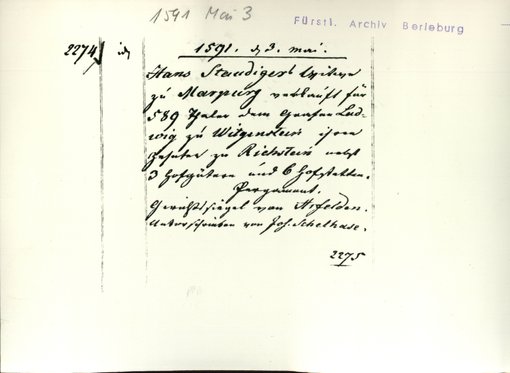 1591 Mai 3
Fürstl. Archiv Berleburg
2274
1591. d 3. mai.
Hans Staudigerl Witwe
zu Marpurg verkauft für
589 Thaler dem Grafen Lud-
wig zu Witgenstein ihren
Zehnten zu Richstein nebst
3 Hofgütern und 6 Hofstetten.
Pergament.
Gerichtssiegel von Arfelden.
Unterschrieben von Joh. Schelhase.
2275